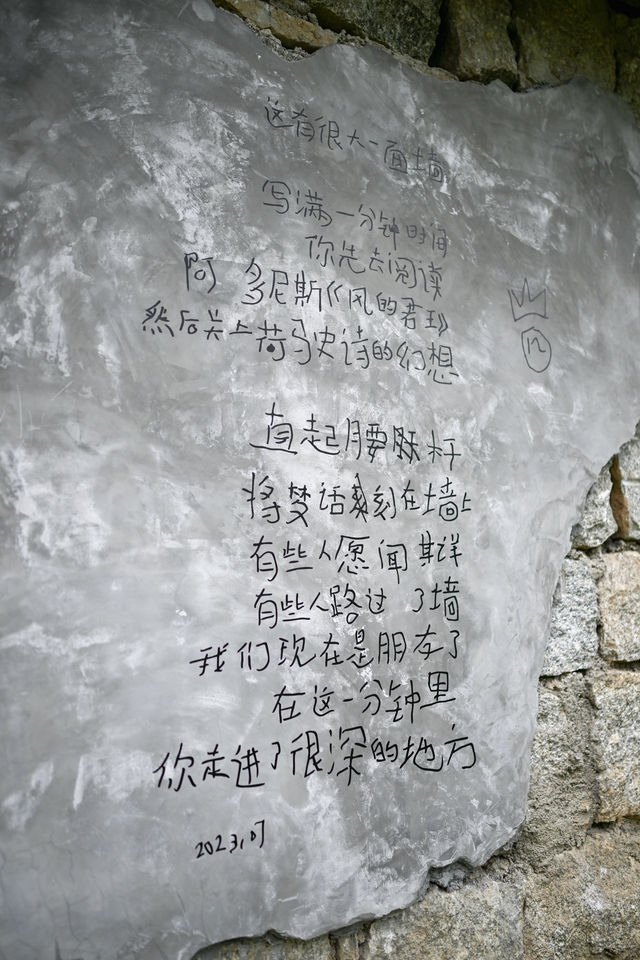 这有很大一面墙
写满一分钟时间
你先去阅读
阿多尼斯《风的君王》
然后关上荷马史诗的幻想
直起腰杆
将梦话刻在墙上
有些人愿闻其详
有些人路过了墙
我们现在是朋友了
在这一分钟里
你走进了很深的地方
2023.07